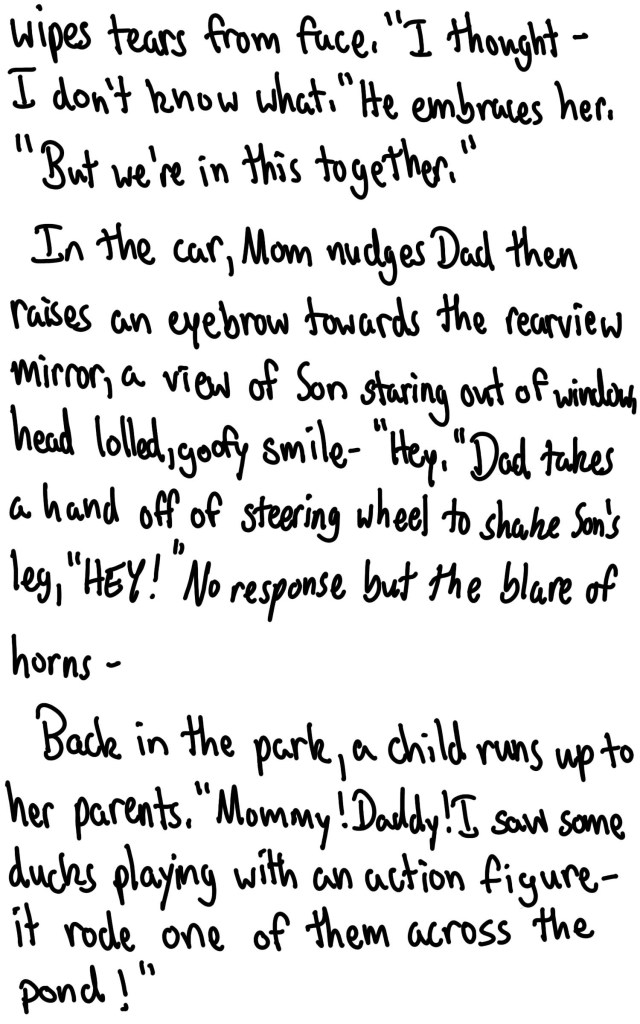 wipes tears from face. "I thought -
I don't know what." He embraces her.
"But we're in this together."
In the car, Mom nudges Dad then
raises an eyebrow towards the rearview
mirror, a view of Son staring out of window,
head lolled, goofy smile - "Hey." Dad takes
a hand off of steering wheel to shake Son's
leg, "HEY!" No response but the blare of
horns -
Back in the park, a child runs up to
her parents. "Mommy! Daddy! I saw some
ducks playing with an action figure -
it rode one of them across the
pond!"